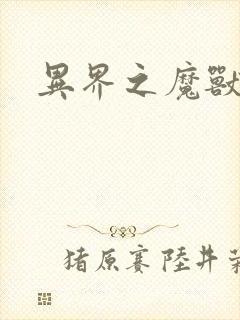 異界之魔獸
猪原赛陸井